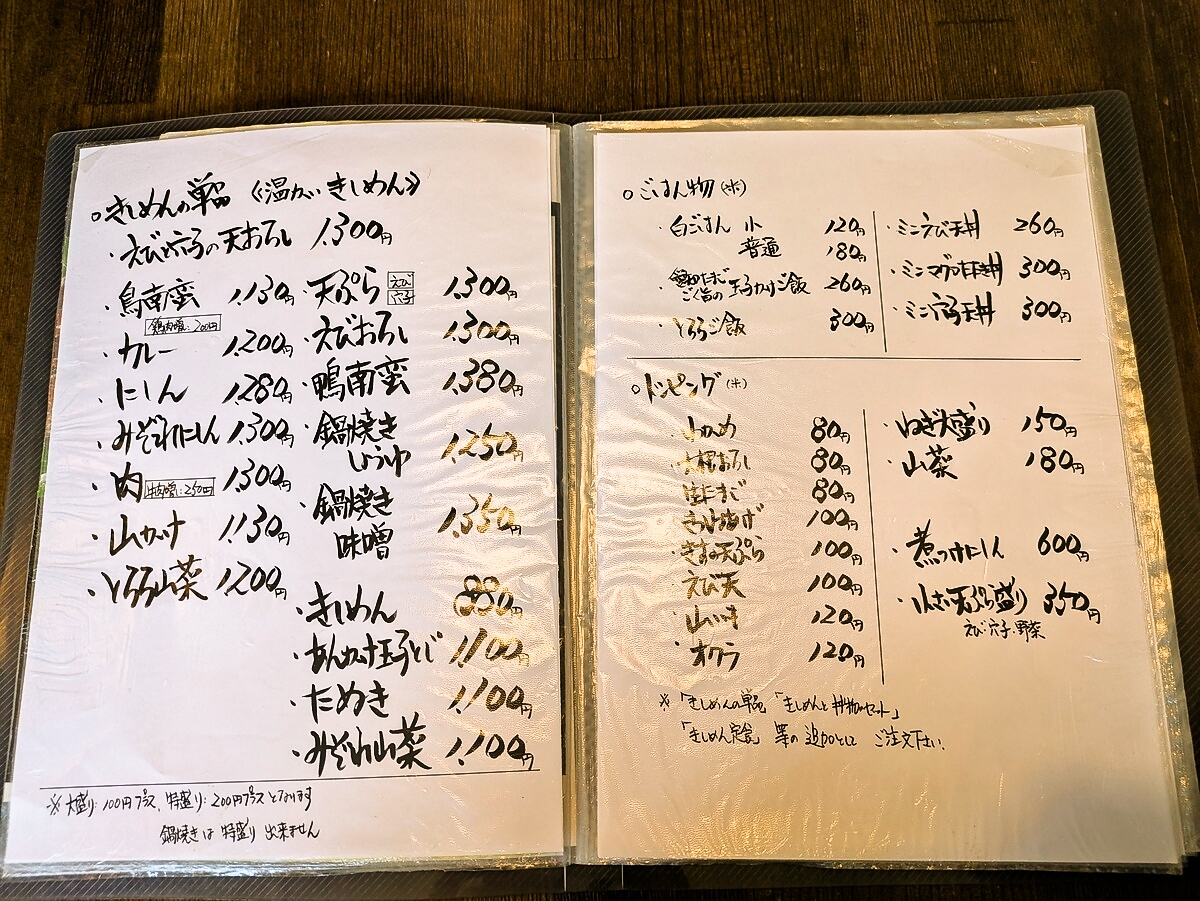 ○きしめんの単品 《温かいきしめん》
・えびと穴子の天おろし 1,300円
・鳥南蛮 1,130円
鶏肉増:200円
・カレー 1,200円
・にしん 1,280円
・みぞれにしん 1,300円
・肉 牛肉増:250円 1,300円
・山かけ 1,130円
・とろろ山菜 1,200円
・天ぷら えび 穴子 1,300円
・えびおろし 1,300円
・鴨南蛮 1,380円
・鍋焼き
しょうゆ 1,250円
・鍋焼き
味噌 1,350円
・きしめん 880円
・あんかけ玉子とじ 1,100円
・たぬき 1,100円
・みぞれ山菜 1,100円
※大盛り:100円プラス、特盛り:200円プラスとなります
鍋焼きは特盛り出来ません
○ごはん物(※)
・白ごはん 小 120円
普通 180円
ごく旨の玉子かけご飯 260円
・とろろご飯 300円
・ミニえび天丼 260円
・ミニマグロ丼 300円
・ミニ穴子天丼 300円
○トッピング(※)
・わかめ 80円
・大根おろし 80円
・生たまご 80円
・きつねあげ 100円
・きすの天ぷら 100円
・えび天 100円
・山いも 120円
・オクラ 120円
・ねぎ大盛り 150円
・山菜 180円
・煮つけにしん 600円
・小さい天ぷら盛り 350円
えび・穴子・野菜
※「きしめんの単品」「きしめんと丼物のセット」
「きしめん定食」等の追加としてご注文下さい。